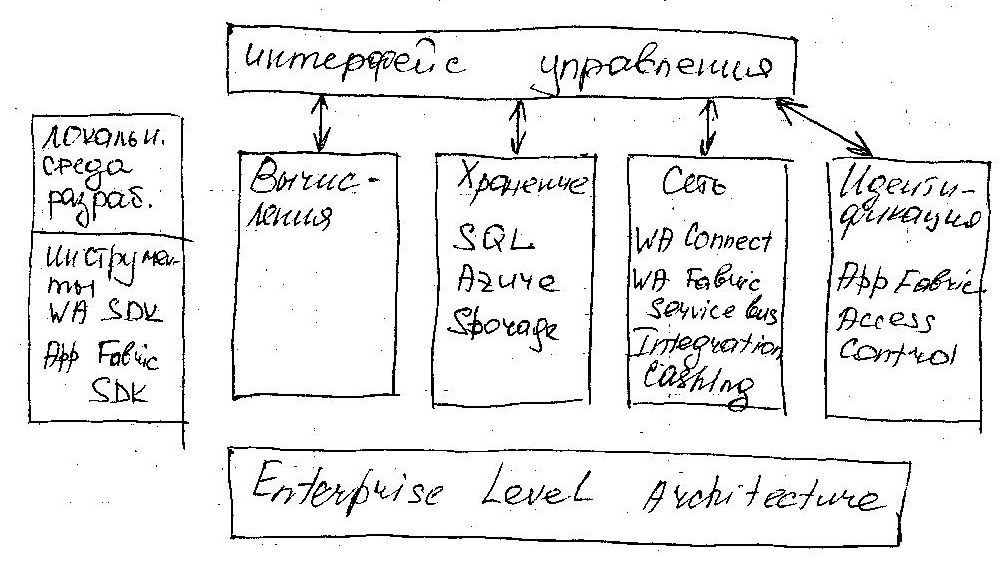 интерфейс управления
локальн.
среда
разраб.
инструмен-
ты
WA SDK
App Fabric
SDK
Вычис-
ления
Хранение
SQL
Azure
Storage
Сеть
WA Connect
WA Fabric
Service bus
Integration
Cashing
Иденти-
фикация
App Fabric
Access
Control
Enterprise Level Architecture